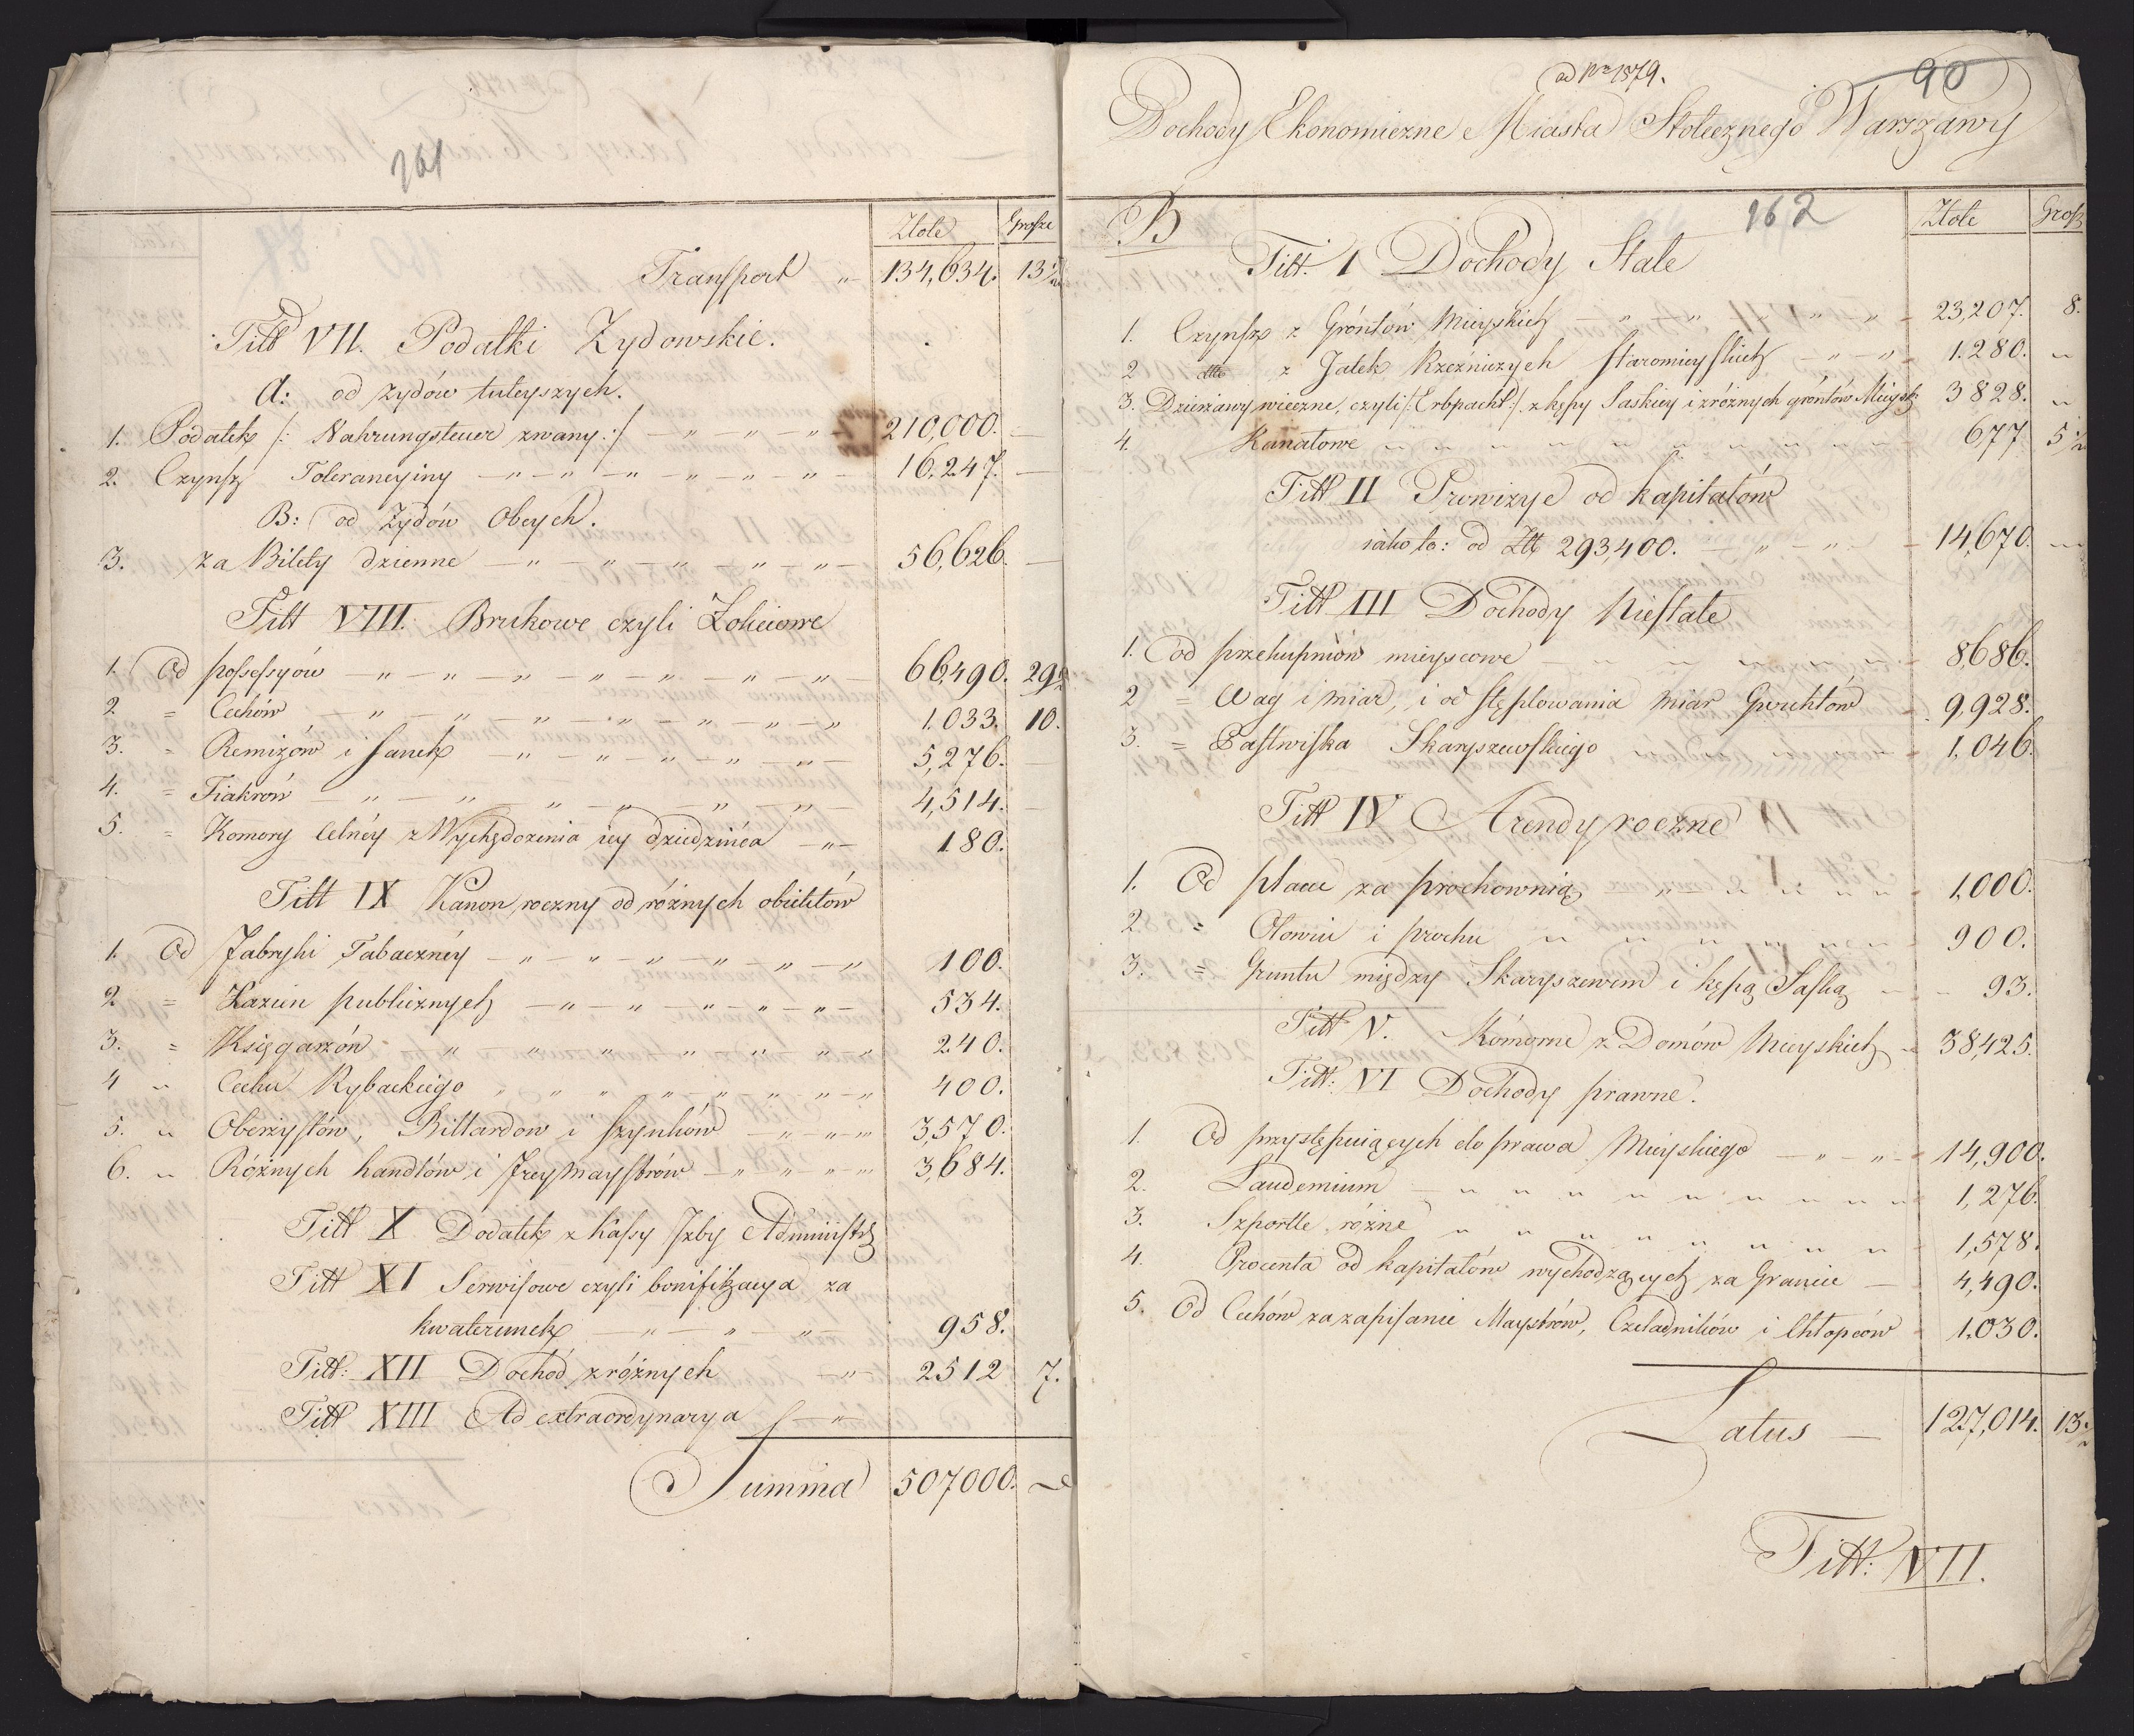 161
Złote Grosze
Transport „ 134,634. 13½
Titt VII. Podatki Zydowskie.
A: od zydów tuteyszych.
1. Podatek /: Nahrungsteuer zwany :/ — „ — „ — „ — 210,000. —
2. Czynsz Tolerancyiny — „ — „ — „ — „ — „ — 16,247. —
B: od Zydów Obcych.
3. za Bilety dzienne — „ — „ — „ — „ — „ — 56,626. —
Titt VIII. Brukowe czyli Łokciowe
1. Od possessyów — „ — „ — „ — „ — „ — „ — 66,490. 29½
2. = Cechów — „ — „ — „ — „ — „ — „ 1,033. 10.
3. = Remizów i sanek — „ — „ — „ — „ — 5,276. —
4. = Fiakrów — „ — „ — „ — „ — „ — „ — 4,514. —
5. = Komory Celnéy z Wychędożenia iey dziedzińca — „ — 180.
Titt IX Kanon roczny od różnych obiektów
1. Od Fabryki Tabacznéy — „ — „ — „ — „ — „ 100.
2 = Łazien publicznych — „ — „ — „ — „ — 534.
3. = Księgarzów „ — „ — „ — „ „ „ „ 240.
4 „ Cechu Rybackiego „ „ „ „ „ „ „ 400.
5. „ Oberzystów, Billardow i szynków — „ — „ — „ 3,570.
6. „ Różnych handlów i Freymaystrów — „ „ „ „ 3,684.
Titt X Dodatek z Kassy Izby Administr
Titt XI Serwisowe czyli bonifikacya za
kwaterunek — „ — „ — „ — 958.
Titt: XII Dochód z różnych — „ — 2512 7.
Titt XIII Ad extraordynarya — „
Summa 507000. —
ad Nro 1579.
90
Dochody Ekonomiczne Miasta Stołecznego Warszawy
162
Złote Grosz
B
Titt. I Dochody Stałe
1. Czynsz z Gróntów Mieyskich — „ — „ — „ „ „ 23,207. 8.
2 dtto z Jatek Rzeźniczych staromieyskich — „ — „ 1.280. „
3. Dzierżawy wieczne, czyli /: Erbpacht :/ z kępy Saskiey i z różnych gróntów Mieysk 3828. „
4. Kanałowe „ „ „ „ „ „ „ „ „ „ 677 5½
Titt II Prowizye od kapitałów
iako to: od Złt 293,400. — „ — „ — 14,670. „
Titt III Dochody Niestałe
1. Od przekupniów mieyscowe — „ „ „ „ „ „ 8,686.
2 = Wag i miar, i od stęplowania miar Gwichtów 9,928.
3. = Pastwiska Skaryszewskiego „ „ „ „ „ 1,046.
Titt IV Arendy roczne
1. Od placu za prochownią „ „ „ „ „ 1,000.
2 = Ołowiu i prochu „ „ „ „ „ „ „ 900.
3. = Gruntu między Skaryszewem i kępą Saską „ „ 93.
Titt V. Kómorne z Domów Mieyskich „ 38,425.
Titt: VI Dochody prawne.
1. Od przystępuiących do prawa Mieyskiego — „ — „ — 14,900.
2. Laudemium — „ „ „ „ „ „ „ „ „ 1,276.
3. Szportle różne „ „ „ „ „ „ „ „ 1,578.
4. Procenta od kapitałów wychodzących za Granice — 4,490.
5. Od Cechów za zapisanie Maystrów, Czeladników i Chłopców 1.030.
Latus — 127,014. 13½
Titt: VII.